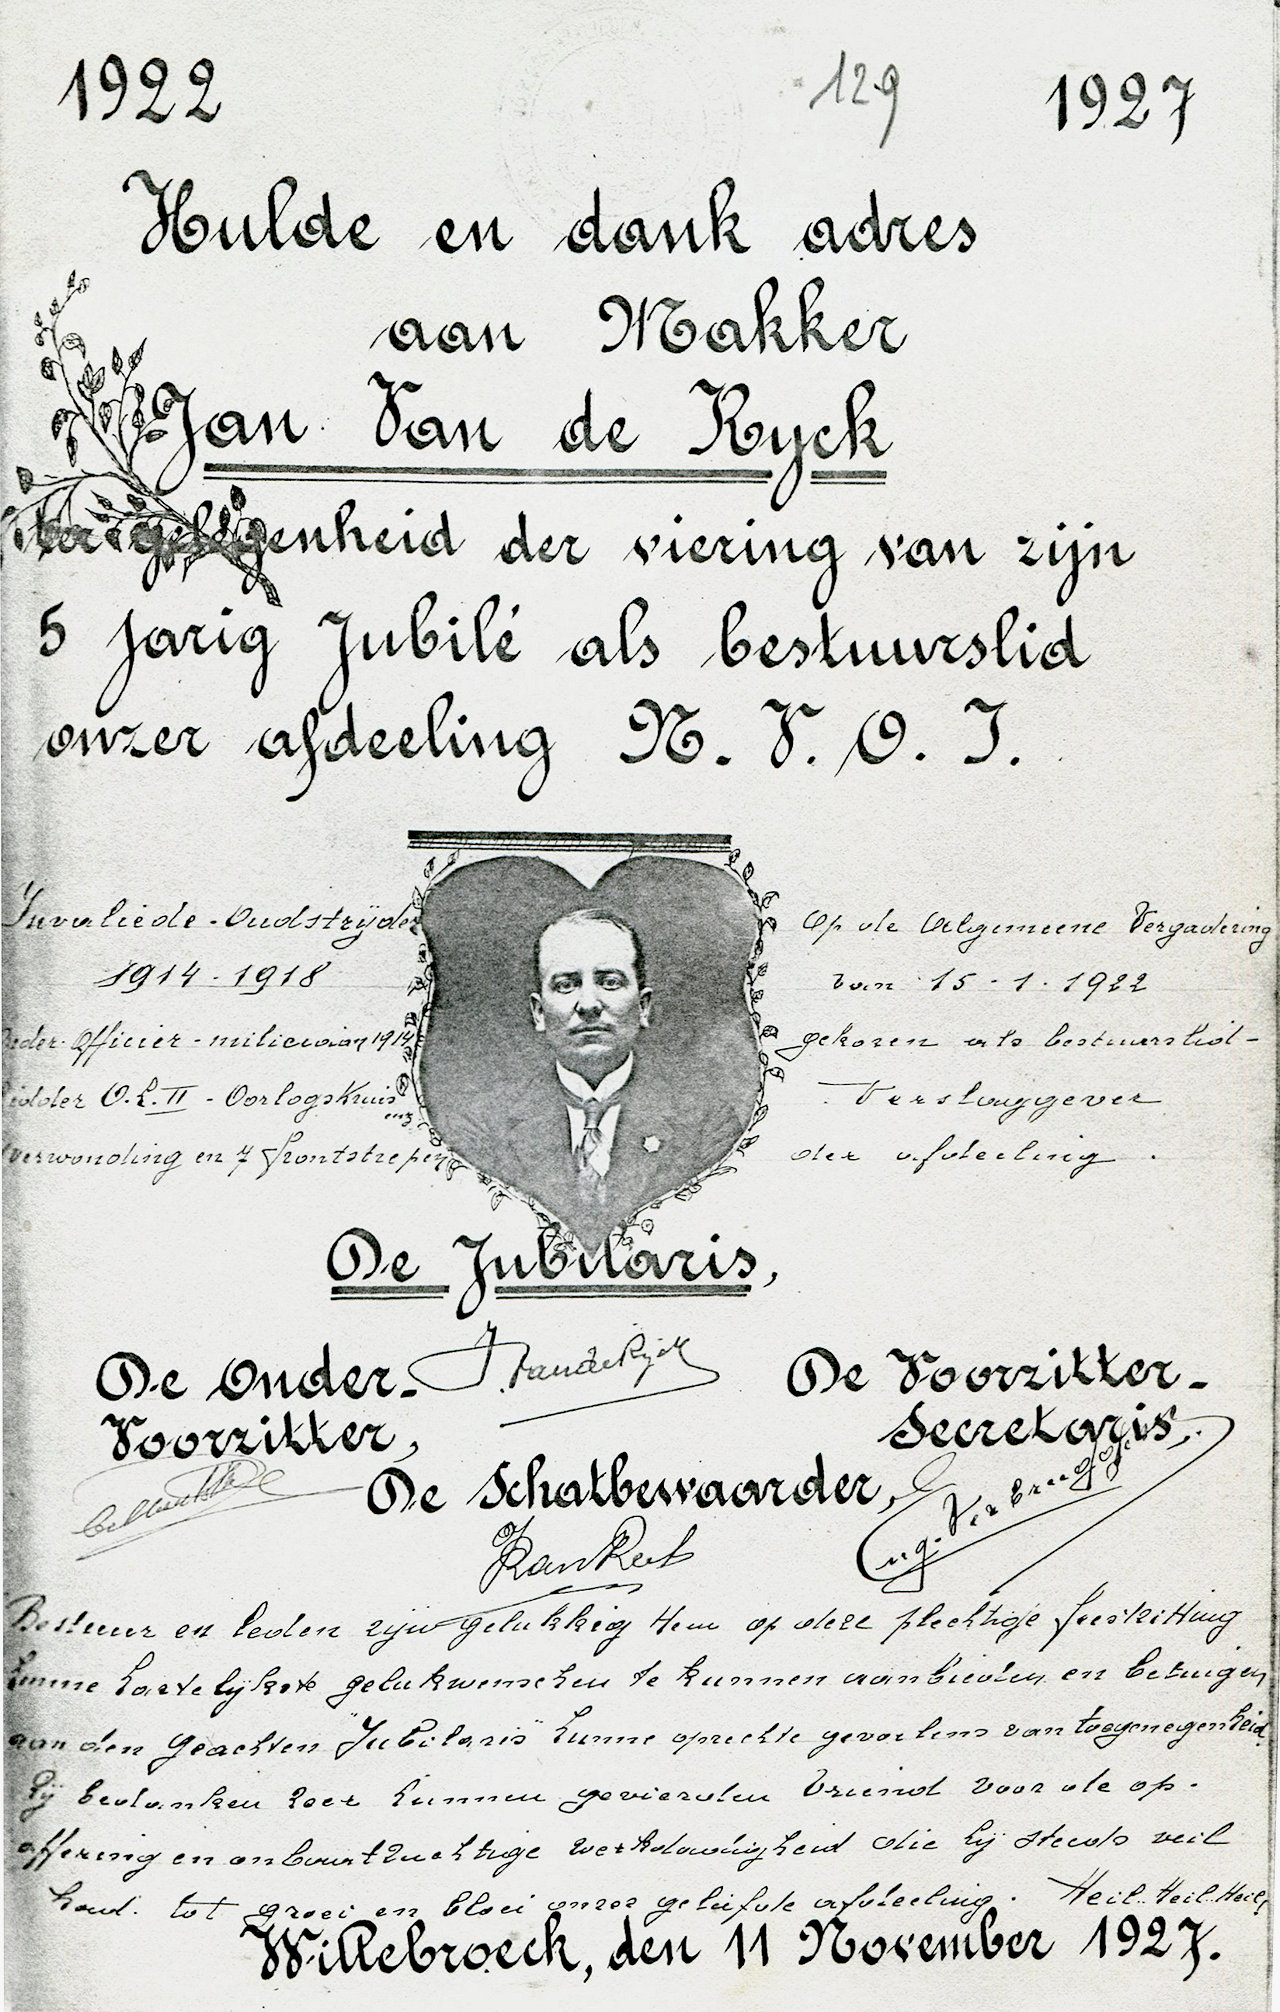 1922 129 1927
Hulde en dank adres
aan Makker
Jan Van de Ryck
ter gelegenheid der viering van zijn
5 jarig Jubilé als bestuurslid
onzer afdeeling N. V. O. I.
Invaliede - Oudstrijder
1914 - 1918
Officier - miliciaan 1914
O.L. II - Oorlogskruis
enz
verwonding en 7 frontstrepen
Op de Algemeene Vergadering
van 15 - 1 - 1922
gekozen als bestuurslid -
Verslaggever
der afdeeling .
De Jubilaris,
J. Van de Ryck
De Onder-
Voorzitter,
De Voorzitter-
Secretaris,
Eug. Verbruggen
De Schatbewaarder,
Bestuur en leden zijn gelukkig Hem op deze plechtige feestzitting
hunne hartelijkste gelukwenschen te kunnen aanbieden en betuigen
aan den Geachten "Jubilaris" hunne oprechte gevoelens van toegenegenheid.
Zij bedanken zeer hunnen gevierden Vriend voor de op-
offering en onbaatzuchtige werkdadigheid die hij steeds veil
had. tot groei en bloei onzer geliefde afdeeling. Heil. Heil. Heil.
Willebroeck, den 11 November 1927.